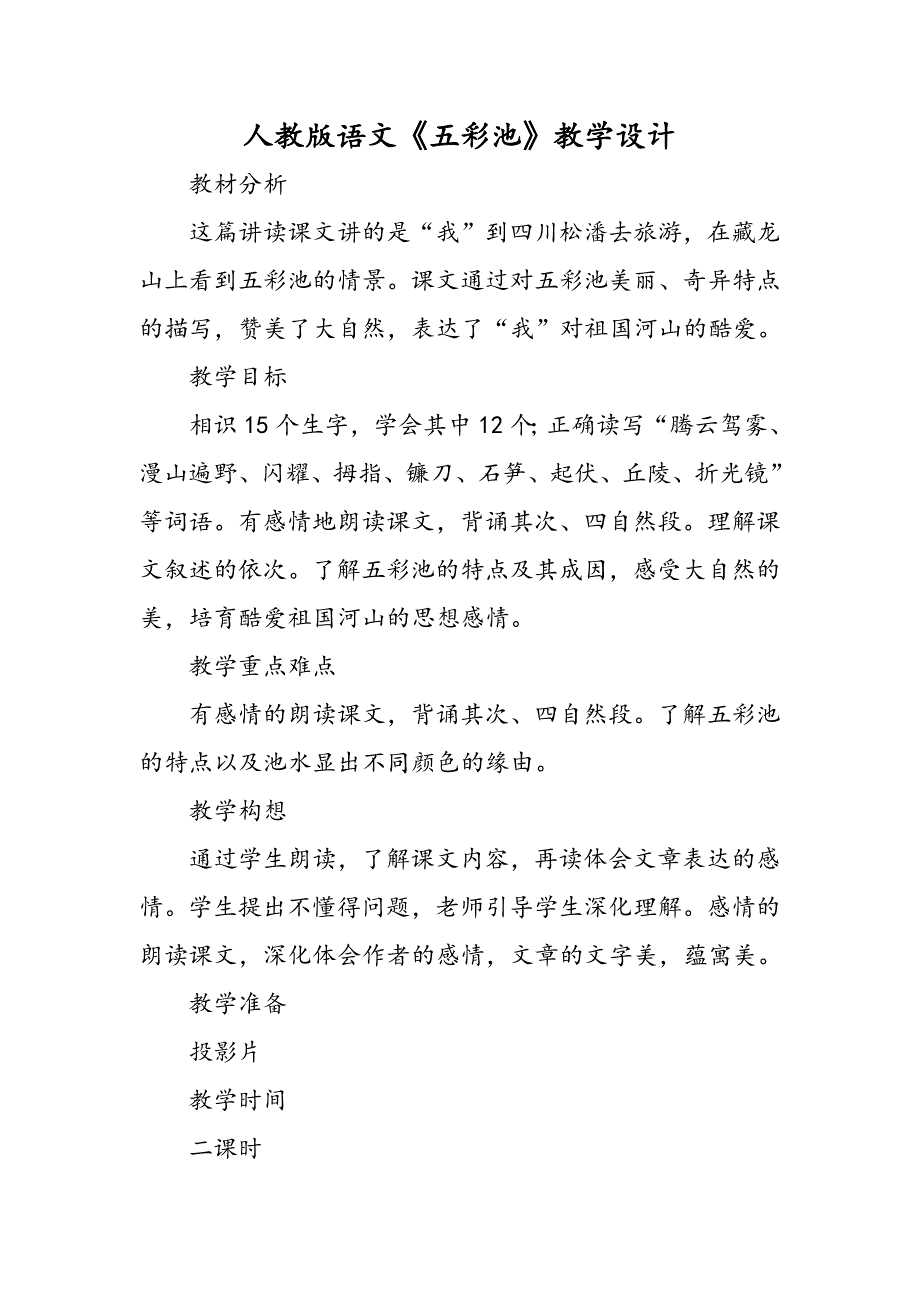 人教版语文《五彩池》教学设计
教材分析
这篇讲读课文讲的是“我”到四川松潘去旅游，在藏龙
山上看到五彩池的情景。课文通过对五彩池美丽、奇异特点
的描写，赞美了大自然，表达了“我”对祖国河山的酷爱。
教学目标
相识15个生字，学会其中12个；正确读写“腾云驾雾、
漫山遍野、闪耀、拇指、镰刀、石笋、起伏、丘陵、折光镜”
等词语。有感情地朗读课文，背诵其次、四自然段。理解课
文叙述的依次。了解五彩池的特点及其成因，感受大自然的
美，培育酷爱祖国河山的思想感情。
教学重点难点
有感情的朗读课文，背诵其次、四自然段。了解五彩池
的特点以及池水显出不同颜色的缘由。
教学构想
通过学生朗读，了解课文内容，再读体会文章表达的感
情。学生提出不懂得问题，老师引导学生深化理解。感情的
朗读课文，深化体会作者的感情，文章的文字美，蕴寓美。
教学准备
投影片
教学时间
二课时